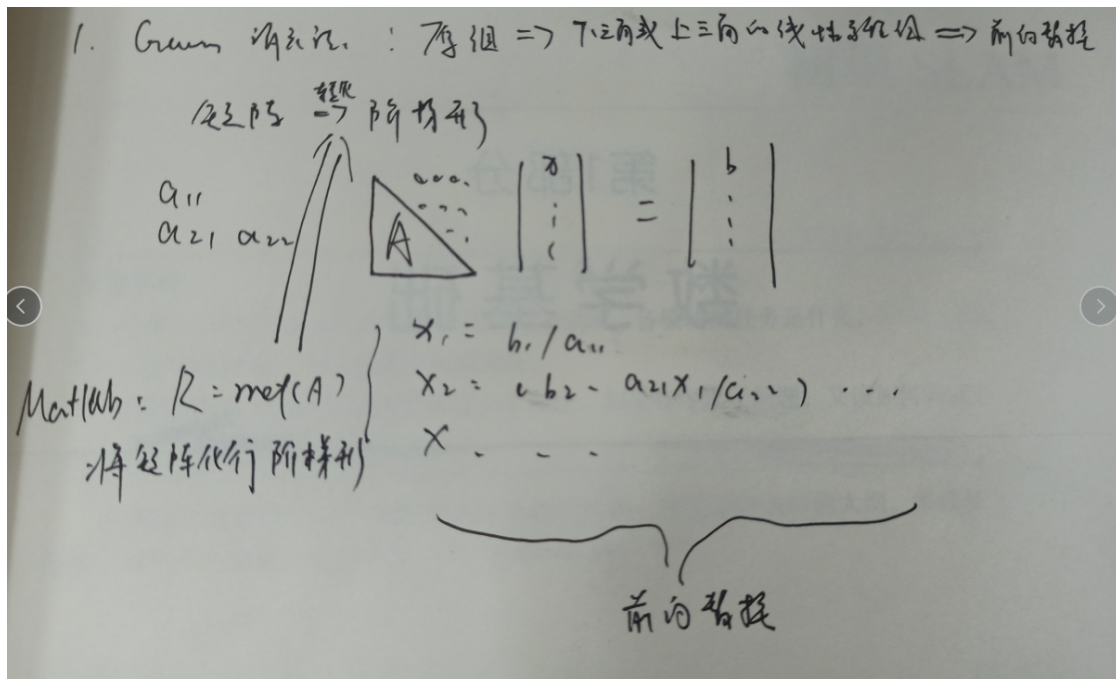 1. Gauss 消元法 : 方程组 => 下三角或上三角的线性方程组 => 前向替换
矩阵 -> 阶梯形
转化
a11
a21 a22
A
x
=
b
x1 = b1 / a11
x2 = ( b2 - a21x1 / a22 ) . . .
x . - .
Matlab: R = rref(A)
将矩阵化行阶梯形
前向替换
第1部分
数学基础